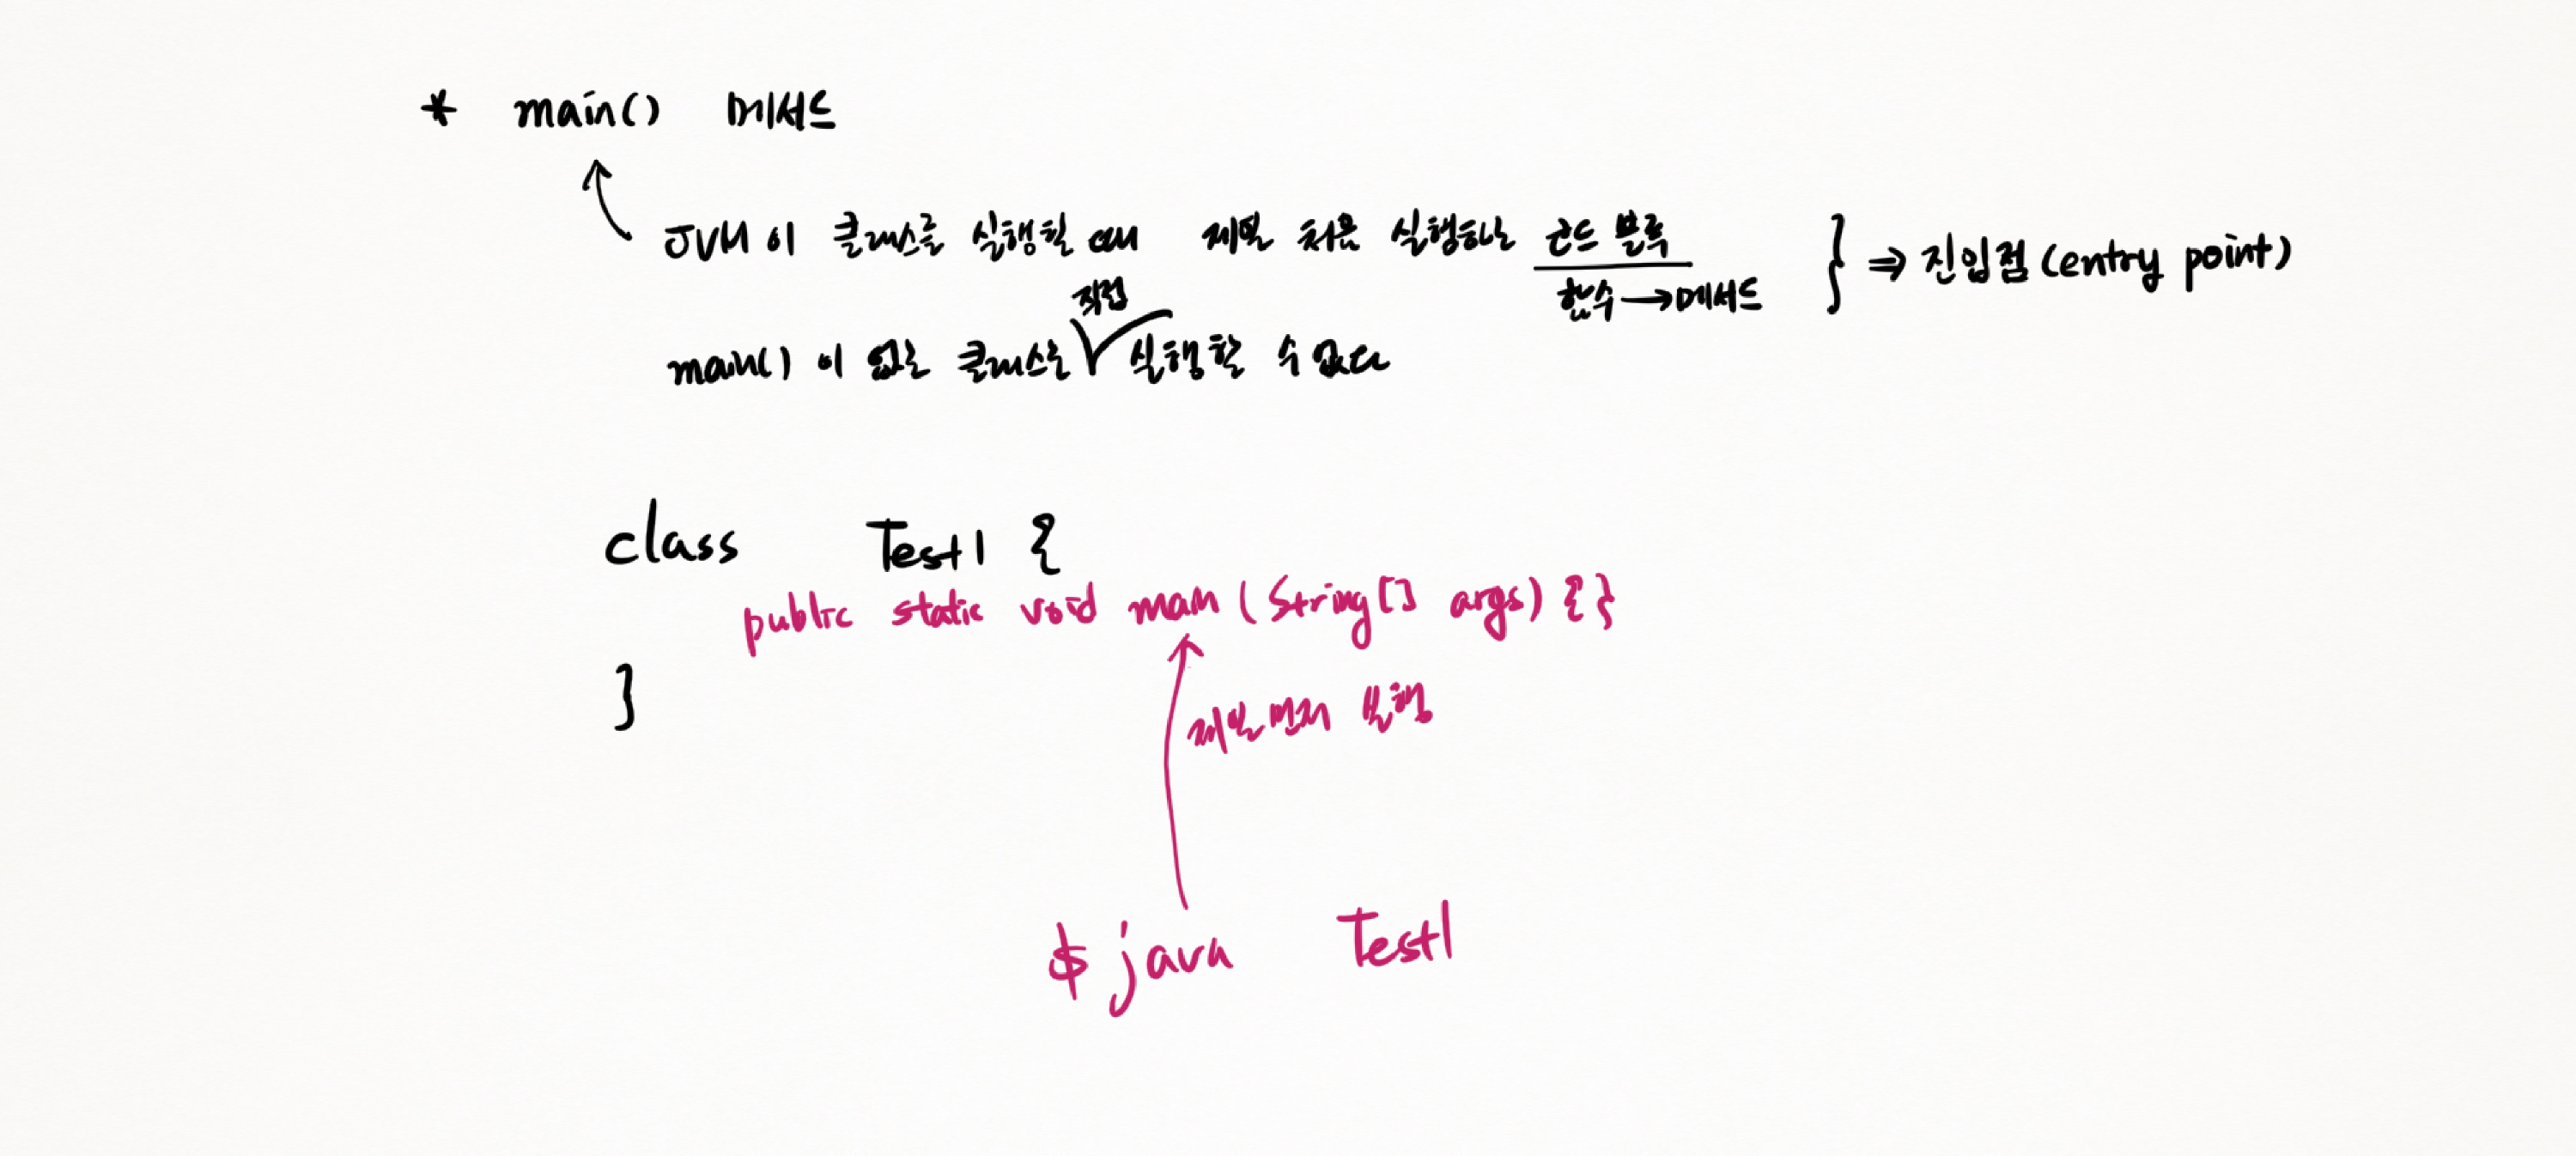 * main() 메서드
JVM이 클래스를 실행할 때 제일 처음 실행하는 코드 블록 } ⇒ 진입점 (entry point)
함수 → 메서드
직접
main()이 없는 클래스는 ∨ 실행할 수 없다
class Test1 {
public static void main (String[] args) { }
}
제일 먼저 실행
$ java Test1